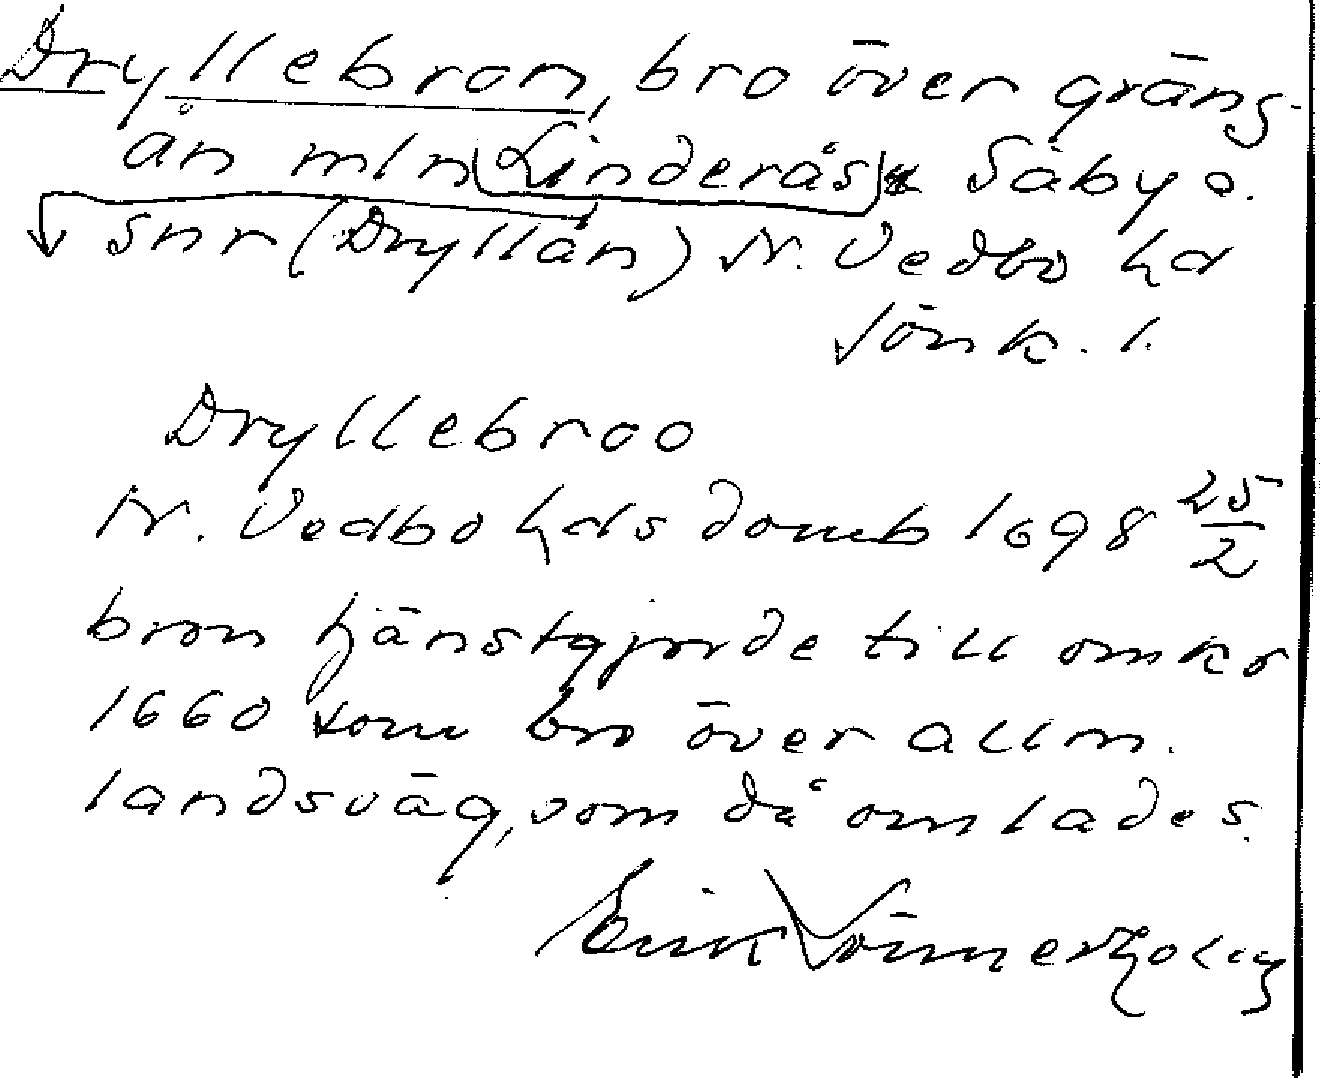 Dryllebron, bro över gräns-
ån mln Linderås Säby o.
snr (Dryllån) N. Vedbo hd
Jönk. l.
Dryllebroo
N. Vedbo hds domb 1698 25/2
bron tjänstgjorde till omkr
1660 som bro över allm.
landsväg, som då omlades.
Erik